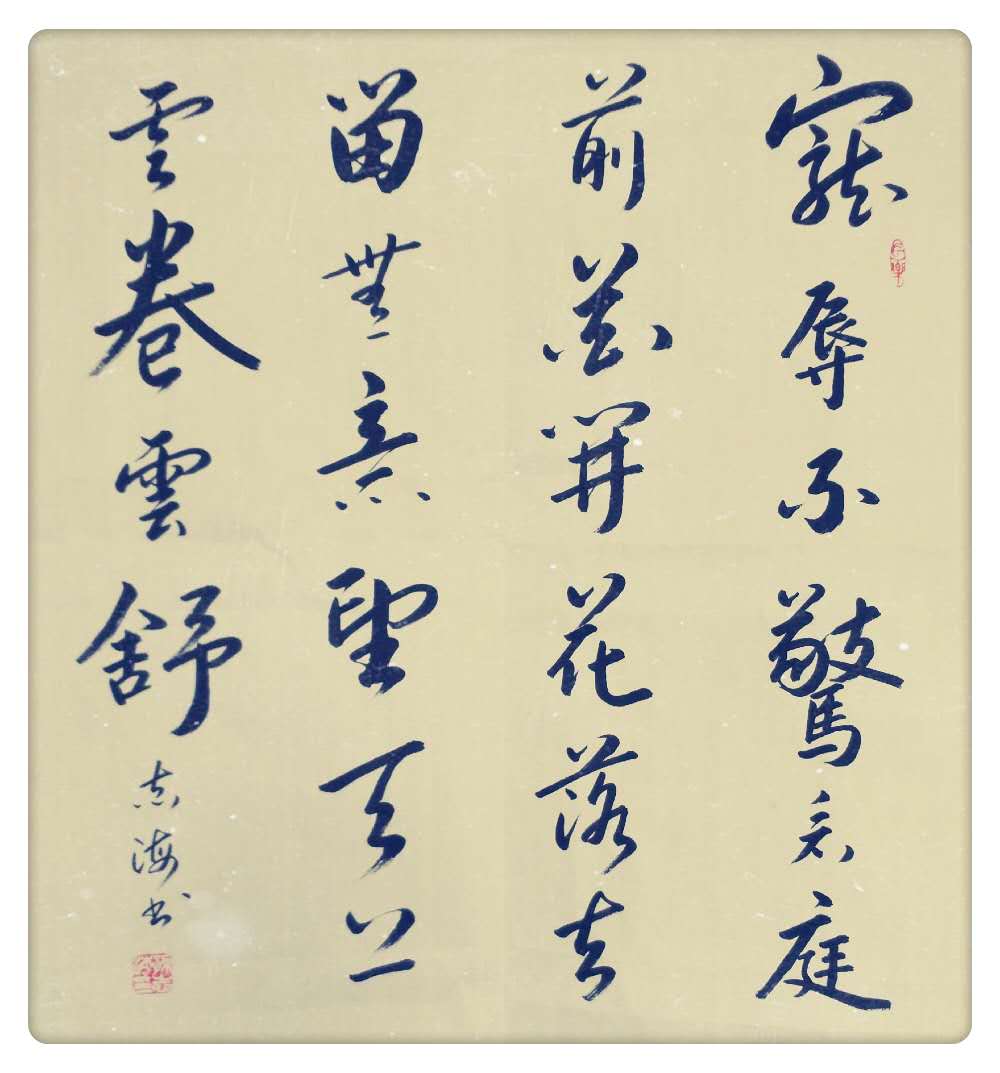 寵辱不驚看庭
前花開花落去
留無意望天上
雲卷雲舒
志海书